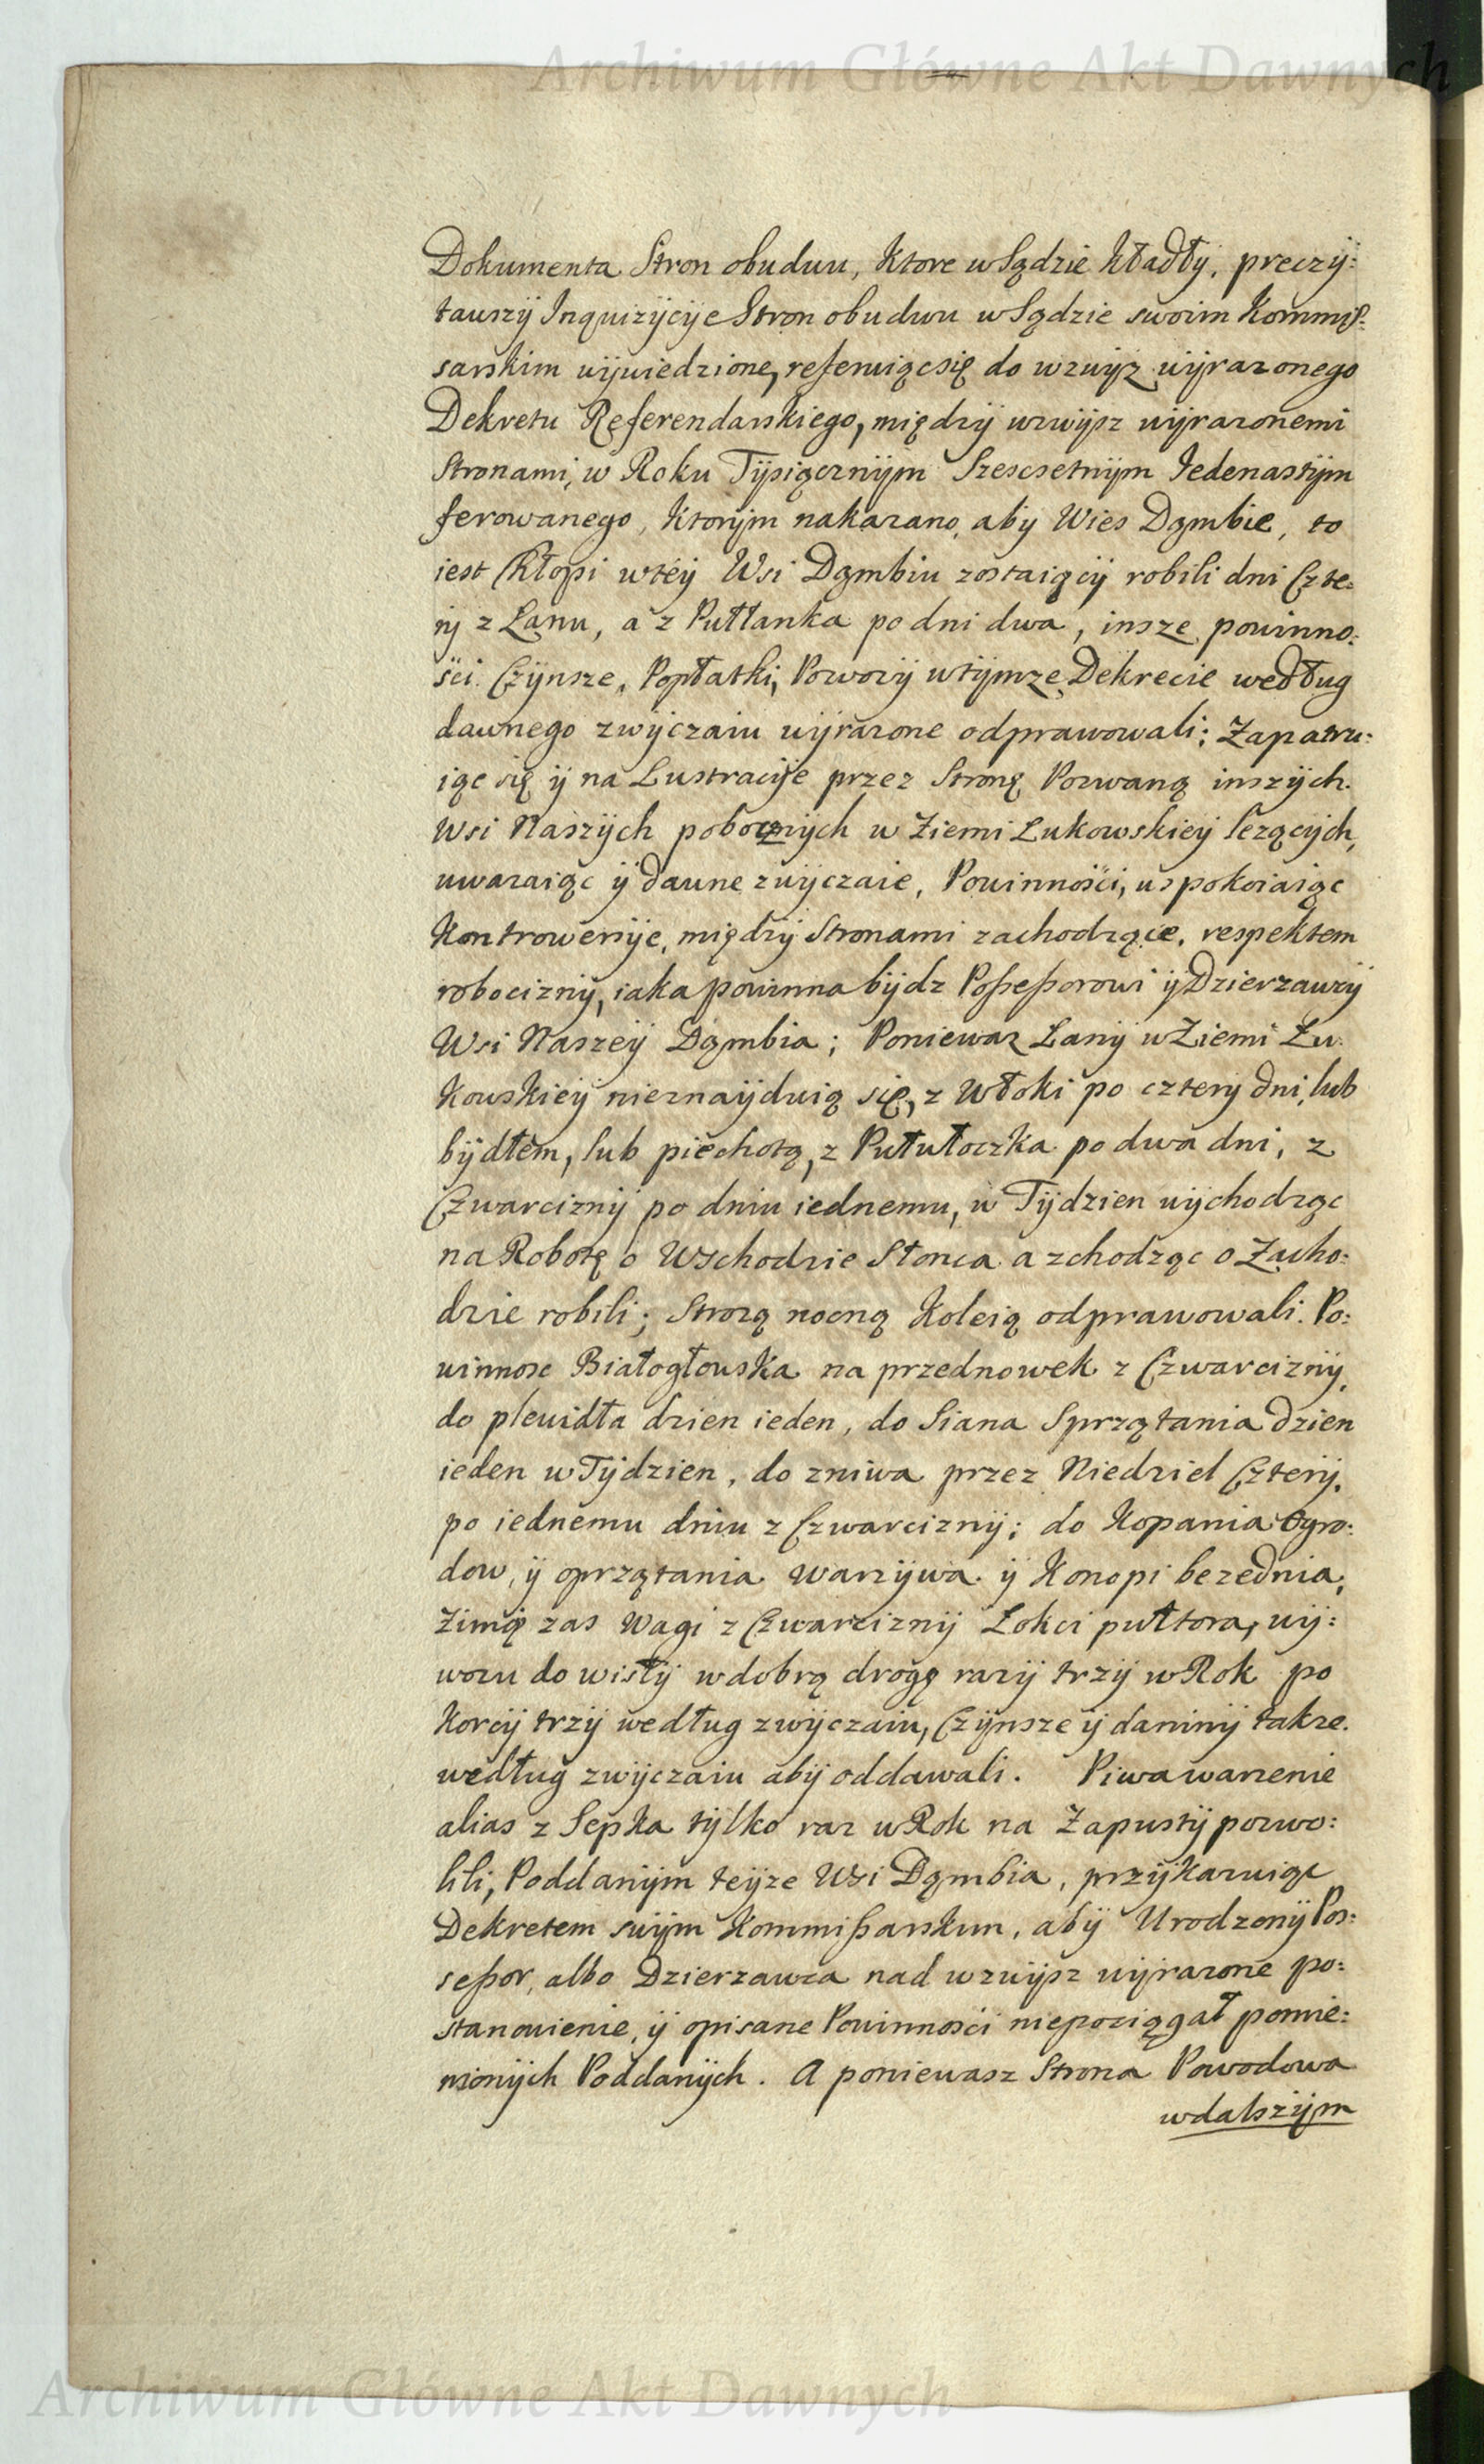 Archiwum Główne Akt Dawnych
Dokumenta Stron obudwu, Ktore w Sądzie kładły, preczy:
tawszy Inquizycye Stron obudwu w Sądzie swoim Kommis:
sarskim wywiedzione, referuiąc się do wzwyz wyrazonego
Dekretu Referendarskiego, między wzwysz wyrazonemi
Stronami, w Roku Tysiącznym Szescsetnym Iedenastym
ferowanego, Ktorym nakazano, aby Wies Dąmbie, to
iest Chłopi w tey Wsi Dąmbiu zostaiący robili dni Czte:
ry z Łanu, a z Pułłanka po dni dwa, insze powinno:
ści Czynsze, Popłatki, Powozy w tymze Dekrecie według
dawnego zwyczaiu wyrazone odprawowali; Zapatru:
iąc się y na Lustracije przez Stronę Pozwaną inszych
Wsi Naszych pobocznych w Ziemi Lukowskiey lezących,
uwazaiąc y dawne zwyczaie, Powinności, uspokoiaiąc
Kontrowersye, między Stronami zachodzące, respektem
robocizny, iaka powinna bydz Possessorowi y Dzierzawcy
Wsi Naszey Dąmbia; Poniewaz Łany w Ziemi Łu:
kowskiey nieznayduią się, z Włoki po cztery dni, lub
bydłem, lub piechotą, z Pułułoczka po dwa dni, z
Czwarcizny po dniu iednemu, w Tydzien wychodząc
na Robotę o Wschodzie Słonca a zchodząc o Zacho:
dzie robili; Strozą nocną Koleią odprawowali. Po:
winnosc Białogłowska na przednowek z Czwarcizny,
do plewidła dzien ieden, do Siana Sprzątania dzien
ieden w Tydzien, do zniwa przez Niedziel Cztery,
po iednemu dniu z Czwarcizny; do Kopania Ogro:
dow, y oprzątania Warzywa y Konopi beze dnia,
Zimą zas Wagi z Czwarcizny Łokci pułtora, wy:
wozu do wisły w dobrą drogę razy trzy w Rok po
Korcy trzy według zwyczaiu, Czynsze y daniny takze
według zwyczaiu aby oddawali. Piwa warzenie
alias z Sepka tylko raz w Rok na Zapusty pozwo:
lili, Poddanym teyze Wsi Dąmbia, przykazuiąc
Dekretem swym Kommissarskim, aby Urodzony Pos:
sessor, albo Dzierzawca nad wzwysz wyrazone po:
stanowienie, y opisane Powinności niepociągał pomie:
nionych Poddanych. A poniewasz Strona Powodowa
w dalszym
Archiwum Główne Akt Dawnych